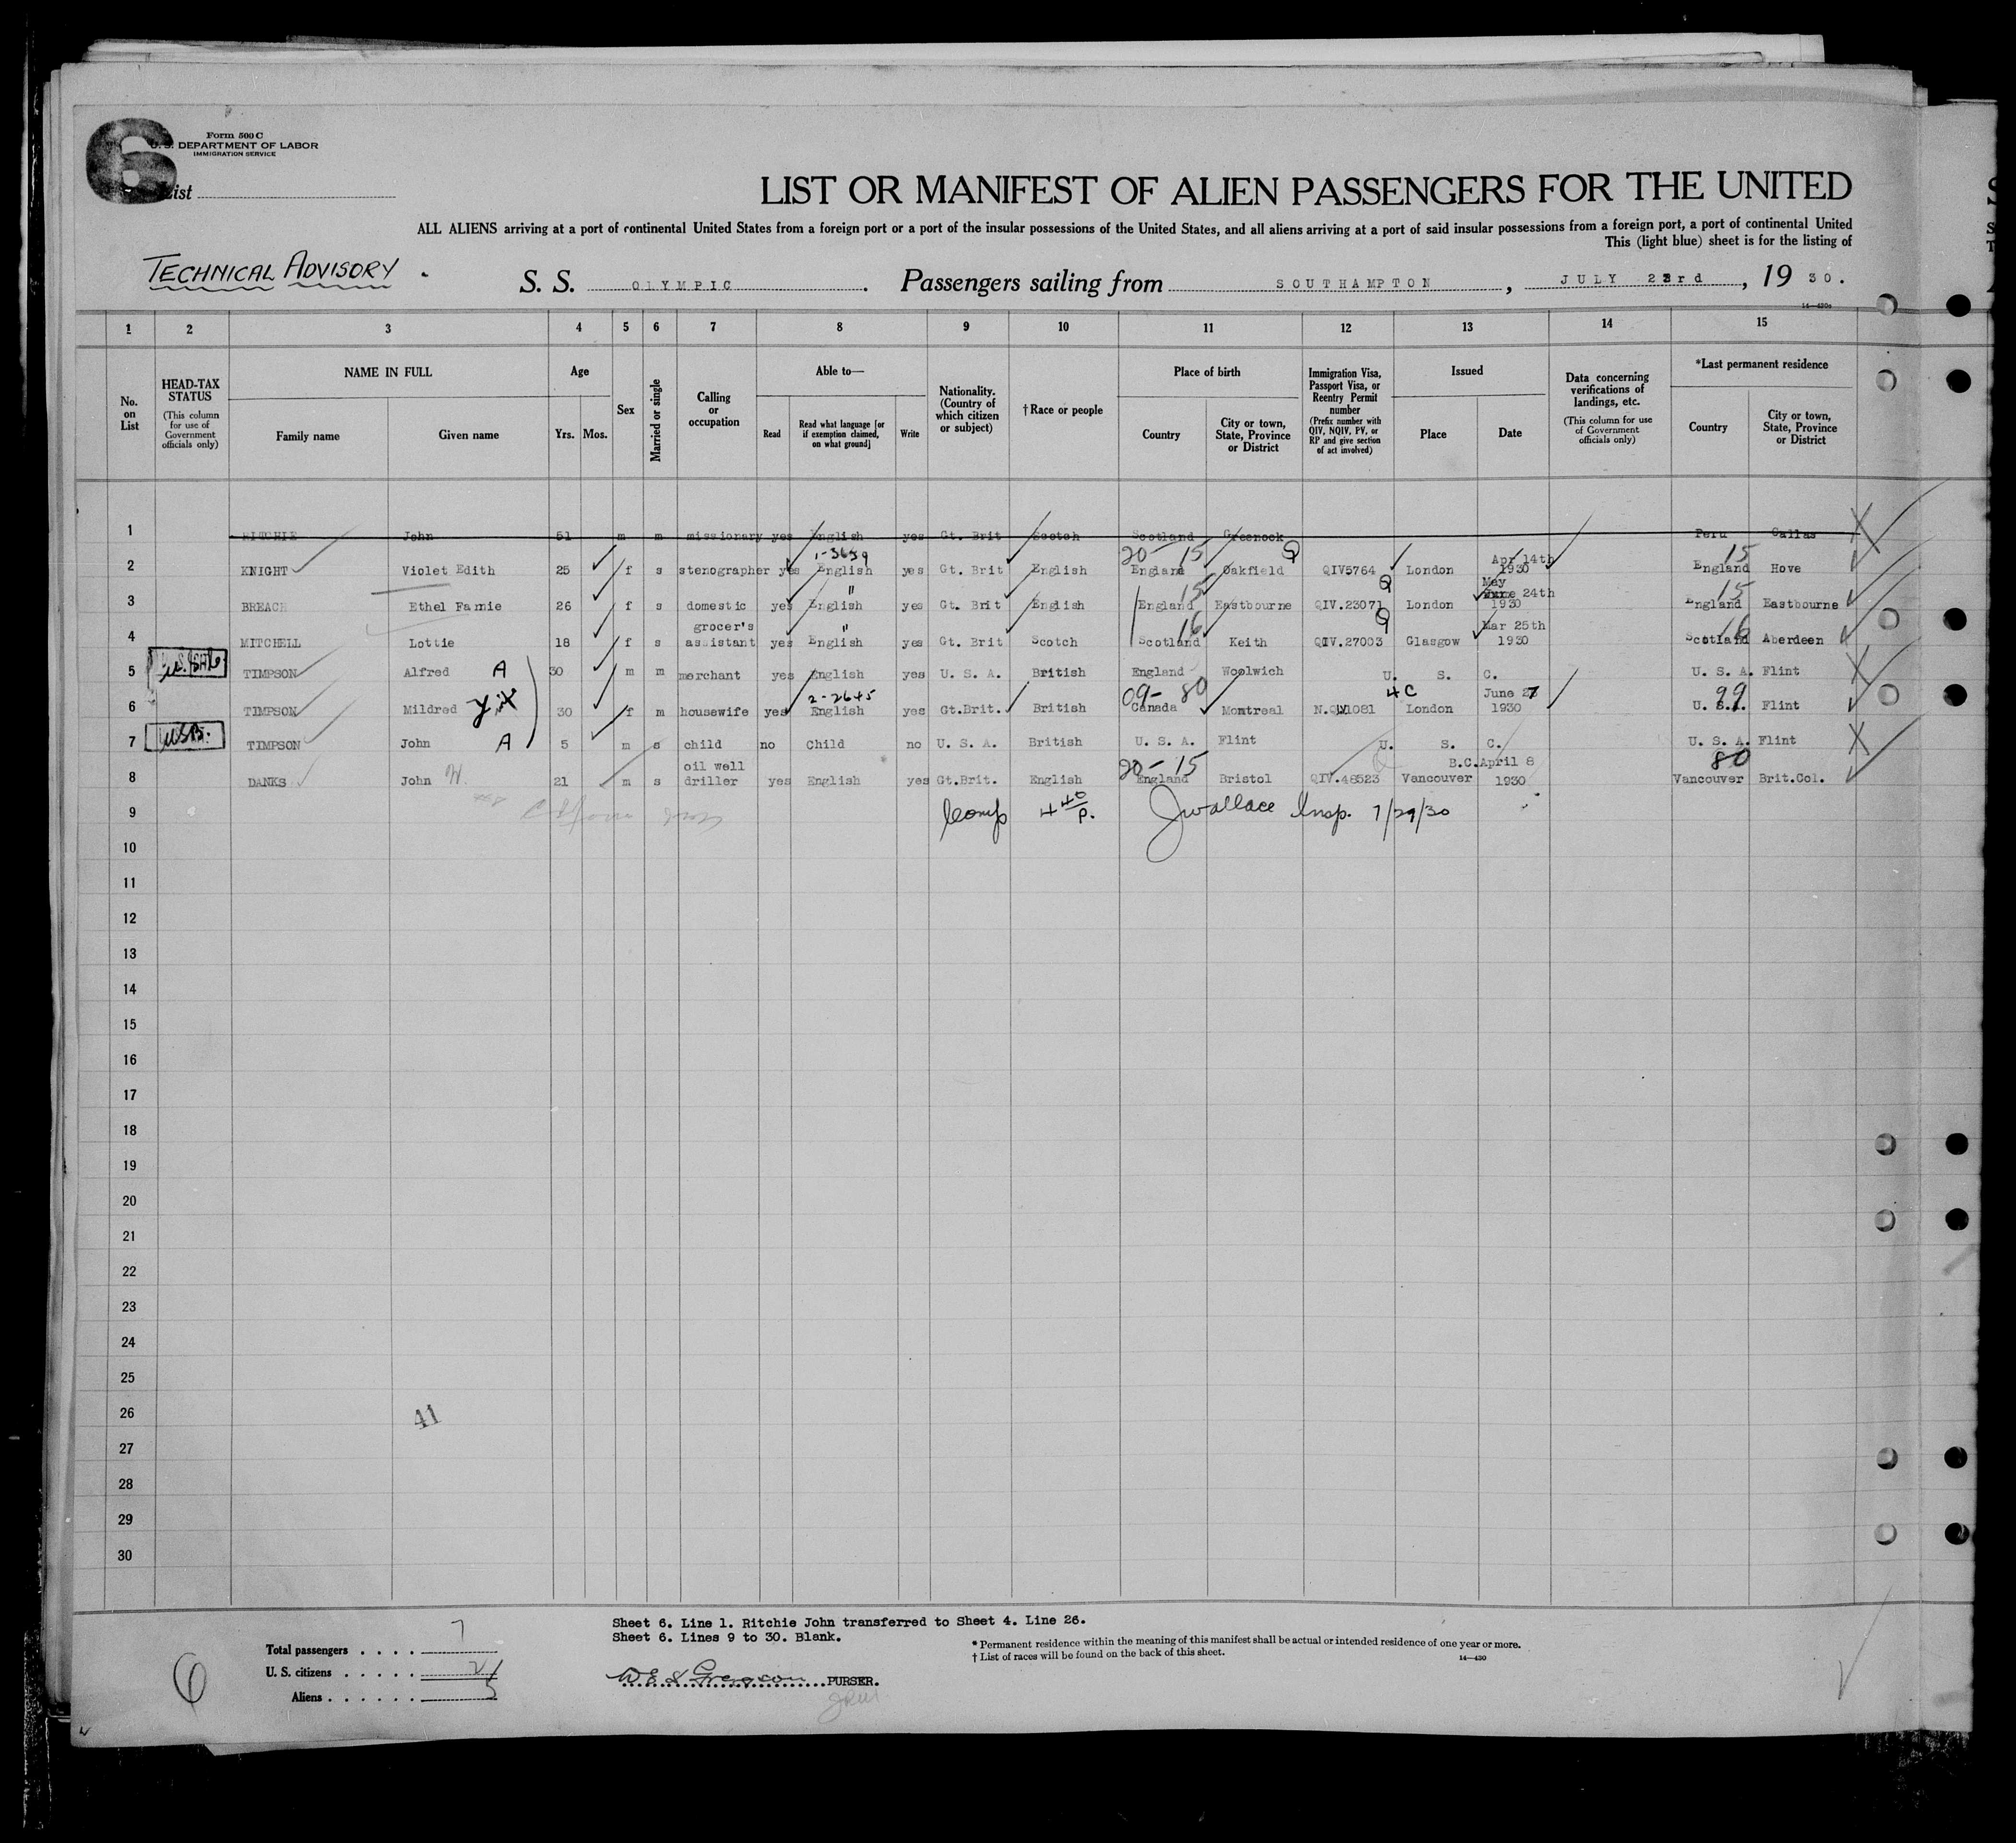 6
Form 500 C
U. S. DEPARTMENT OF LABOR
IMMIGRATION SERVICE
List
LIST OR MANIFEST OF ALIEN PASSENGERS FOR THE UNITED
ALL ALIENS arriving at a port of continental United States from a foreign port or a port of the insular possessions of the United States, and all aliens arriving at a port of said insular possessions from a foreign port, a port of continental United
This (light blue) sheet is for the listing of
TECHNICAL ADVISORY.
S. S. OLYMPIC. Passengers sailing from SOUTHAMPTON, JULY 23rd, 1930.
1 2 3 4 5 6 7 8 9 10 11 12 13 14 15
No. on List
HEAD-TAX STATUS (This column for use of Government officials only)
NAME IN FULL
Family name Given name
Age
Yrs. Mos.
Sex
Married or single
Calling or occupation
Able to—
Read Read what language [or if exemption claimed, on what ground] Write
Nationality. (Country of which citizen or subject)
†Race or people
Place of birth
Country City or town, State, Province or District
Immigration Visa, Passport Visa, or Reentry Permit number (Prefix number with QIV, NQIV, PV, or RP and give section of act involved)
Issued
Place Date
Data concerning verifications of landings, etc. (This column for use of Government officials only)
*Last permanent residence
Country City or town, State, Province or District
1 RITCHIE John 51 m m missionary yes English yes Gt. Brit Scotch Scotland Greenock Peru Callas X
1-3659 20- 15 Q Apr 14th 15
2 KNIGHT Violet Edith 25 f s stenographer yes English yes Gt. Brit English England Oakfield QIV5764 London 1930 England Hove
" 15 Q May 24th 15
3 BREACH Ethel Famie 26 f s domestic yes English yes Gt. Brit English England Eastbourne QIV.23071 London 1930 England Eastbourne
grocer's " 16 Q Mar 25th 16
4 MITCHELL Lottie 18 f s assistant yes English yes Gt. Brit Scotch Scotland Keith QIV.27003 Glasgow 1930 Scotland Aberdeen
5 TIMPSON Alfred A 30 m m merchant yes English yes U. S. A. British England Woolwich U. S. C. U. S. A. Flint X
2-2645 09- 80 4C June 27 99
6 TIMPSON Mildred 30 f m housewife yes English yes Gt.Brit. British Canada Montreal N.QIV1081 London 1930 U. S. A. Flint
7 USB. TIMPSON John A 5 m s child no Child no U. S. A. British U. S. A. Flint U. S. C. U. S. A. Flint X
oil well 20-15 B.C. April 8 80
8 DANKS John H. 21 m s driller yes English yes Gt.Brit. English England Bristol QIV.48523 Vancouver 1930 Vancouver Brit.Col.
9 Comp 4 40 P. JWallace Insp. 7/29/30
10
11
12
13
14
15
16
17
18
19
20
21
22
23
24
25
26 41
27
28
29
30
Sheet 6. Line 1. Ritchie John transferred to Sheet 4. Line 26.
Sheet 6. Lines 9 to 30. Blank.
* Permanent residence within the meaning of this manifest shall be actual or intended residence of one year or more.
† List of races will be found on the back of this sheet.
14—430
Total passengers . . . . 7
U. S. citizens . . . . . 2
Aliens . . . . . . 5
6
PURSER.